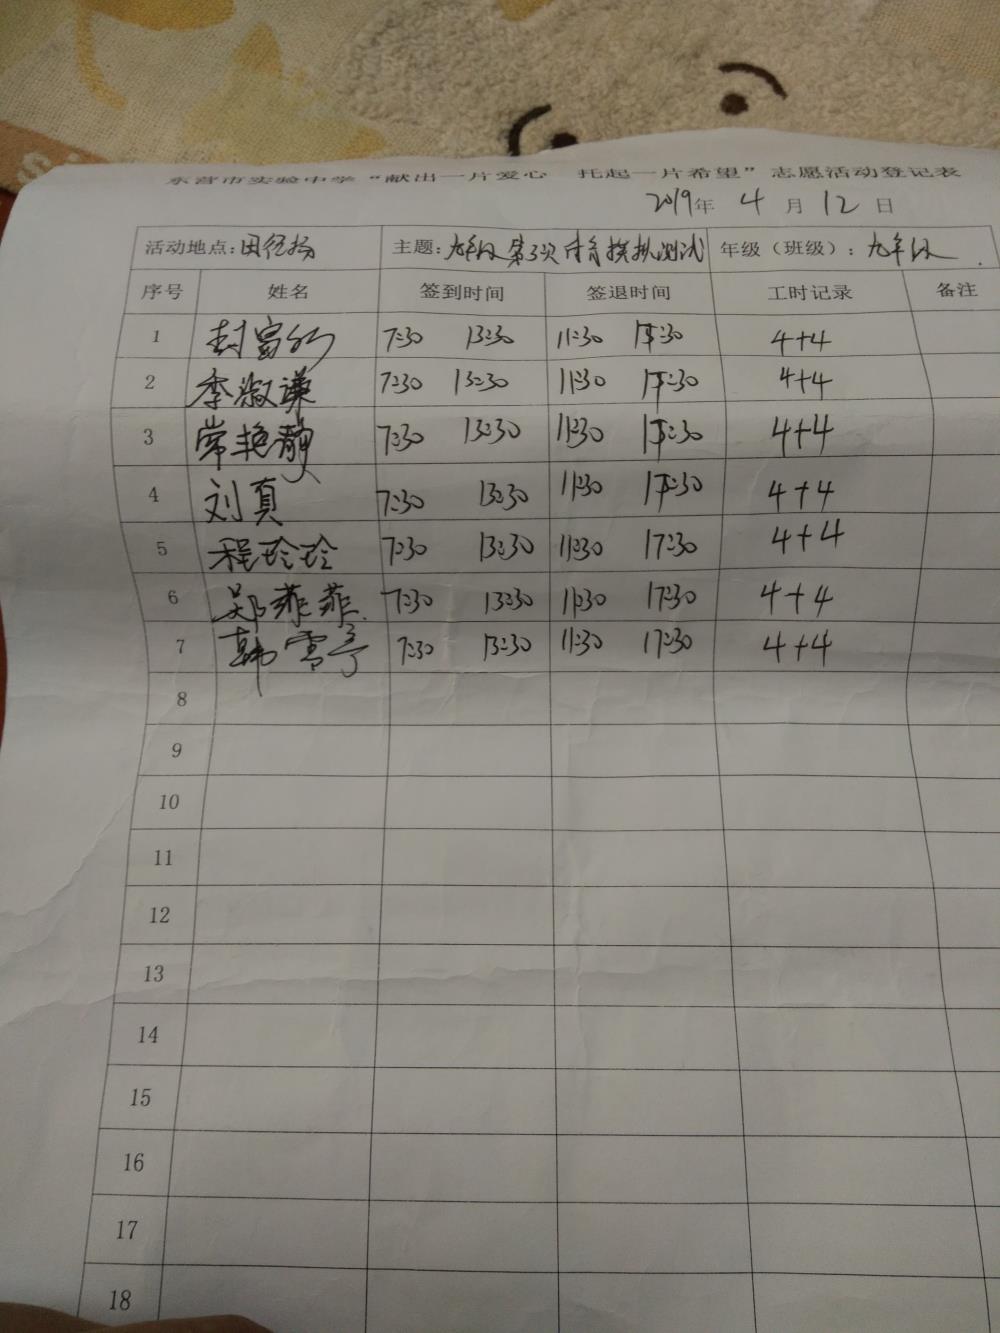 东营市实验中学“献出一片爱心 托起一片希望”志愿活动登记表
2019年 4 月 12 日
活动地点:田径场 主题:九年级第3次体育模拟测试 年级(班级):九年级
序号 姓名 签到时间 签退时间 工时记录 备注
1 封富 7:30 13:30 11:30 17:30 4+4
2 李淑谦 7:30 13:30 11:30 17:30 4+4
3 常艳静 7:30 13:30 11:30 17:30 4+4
4 刘真 7:30 13:30 11:30 17:30 4+4
5 程玲玲 7:30 13:30 11:30 17:30 4+4
6 郑菲菲 7:30 13:30 11:30 17:30 4+4
7 韩雪亭 7:30 13:30 11:30 17:30 4+4
8
9
10
11
12
13
14
15
16
17
18